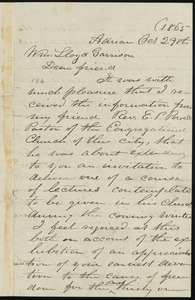 (186
Adrian Oct 29th
Wm Lloyd Garrison
Dear friend
It was with
much pleasure that I re-
ceived the information from
my friend Rev. E. P.
Pastor of the Congregational
Church of this city, that
he was about extending
to you an invitation to
deliver one of a course
of lectures contemplated
to be given in his Church
during the coming winter
I feel rejoiced at this
both on account of the ex-
hibition of an appreciation
of your constant devo-
tion to the cause of free-
dom for the